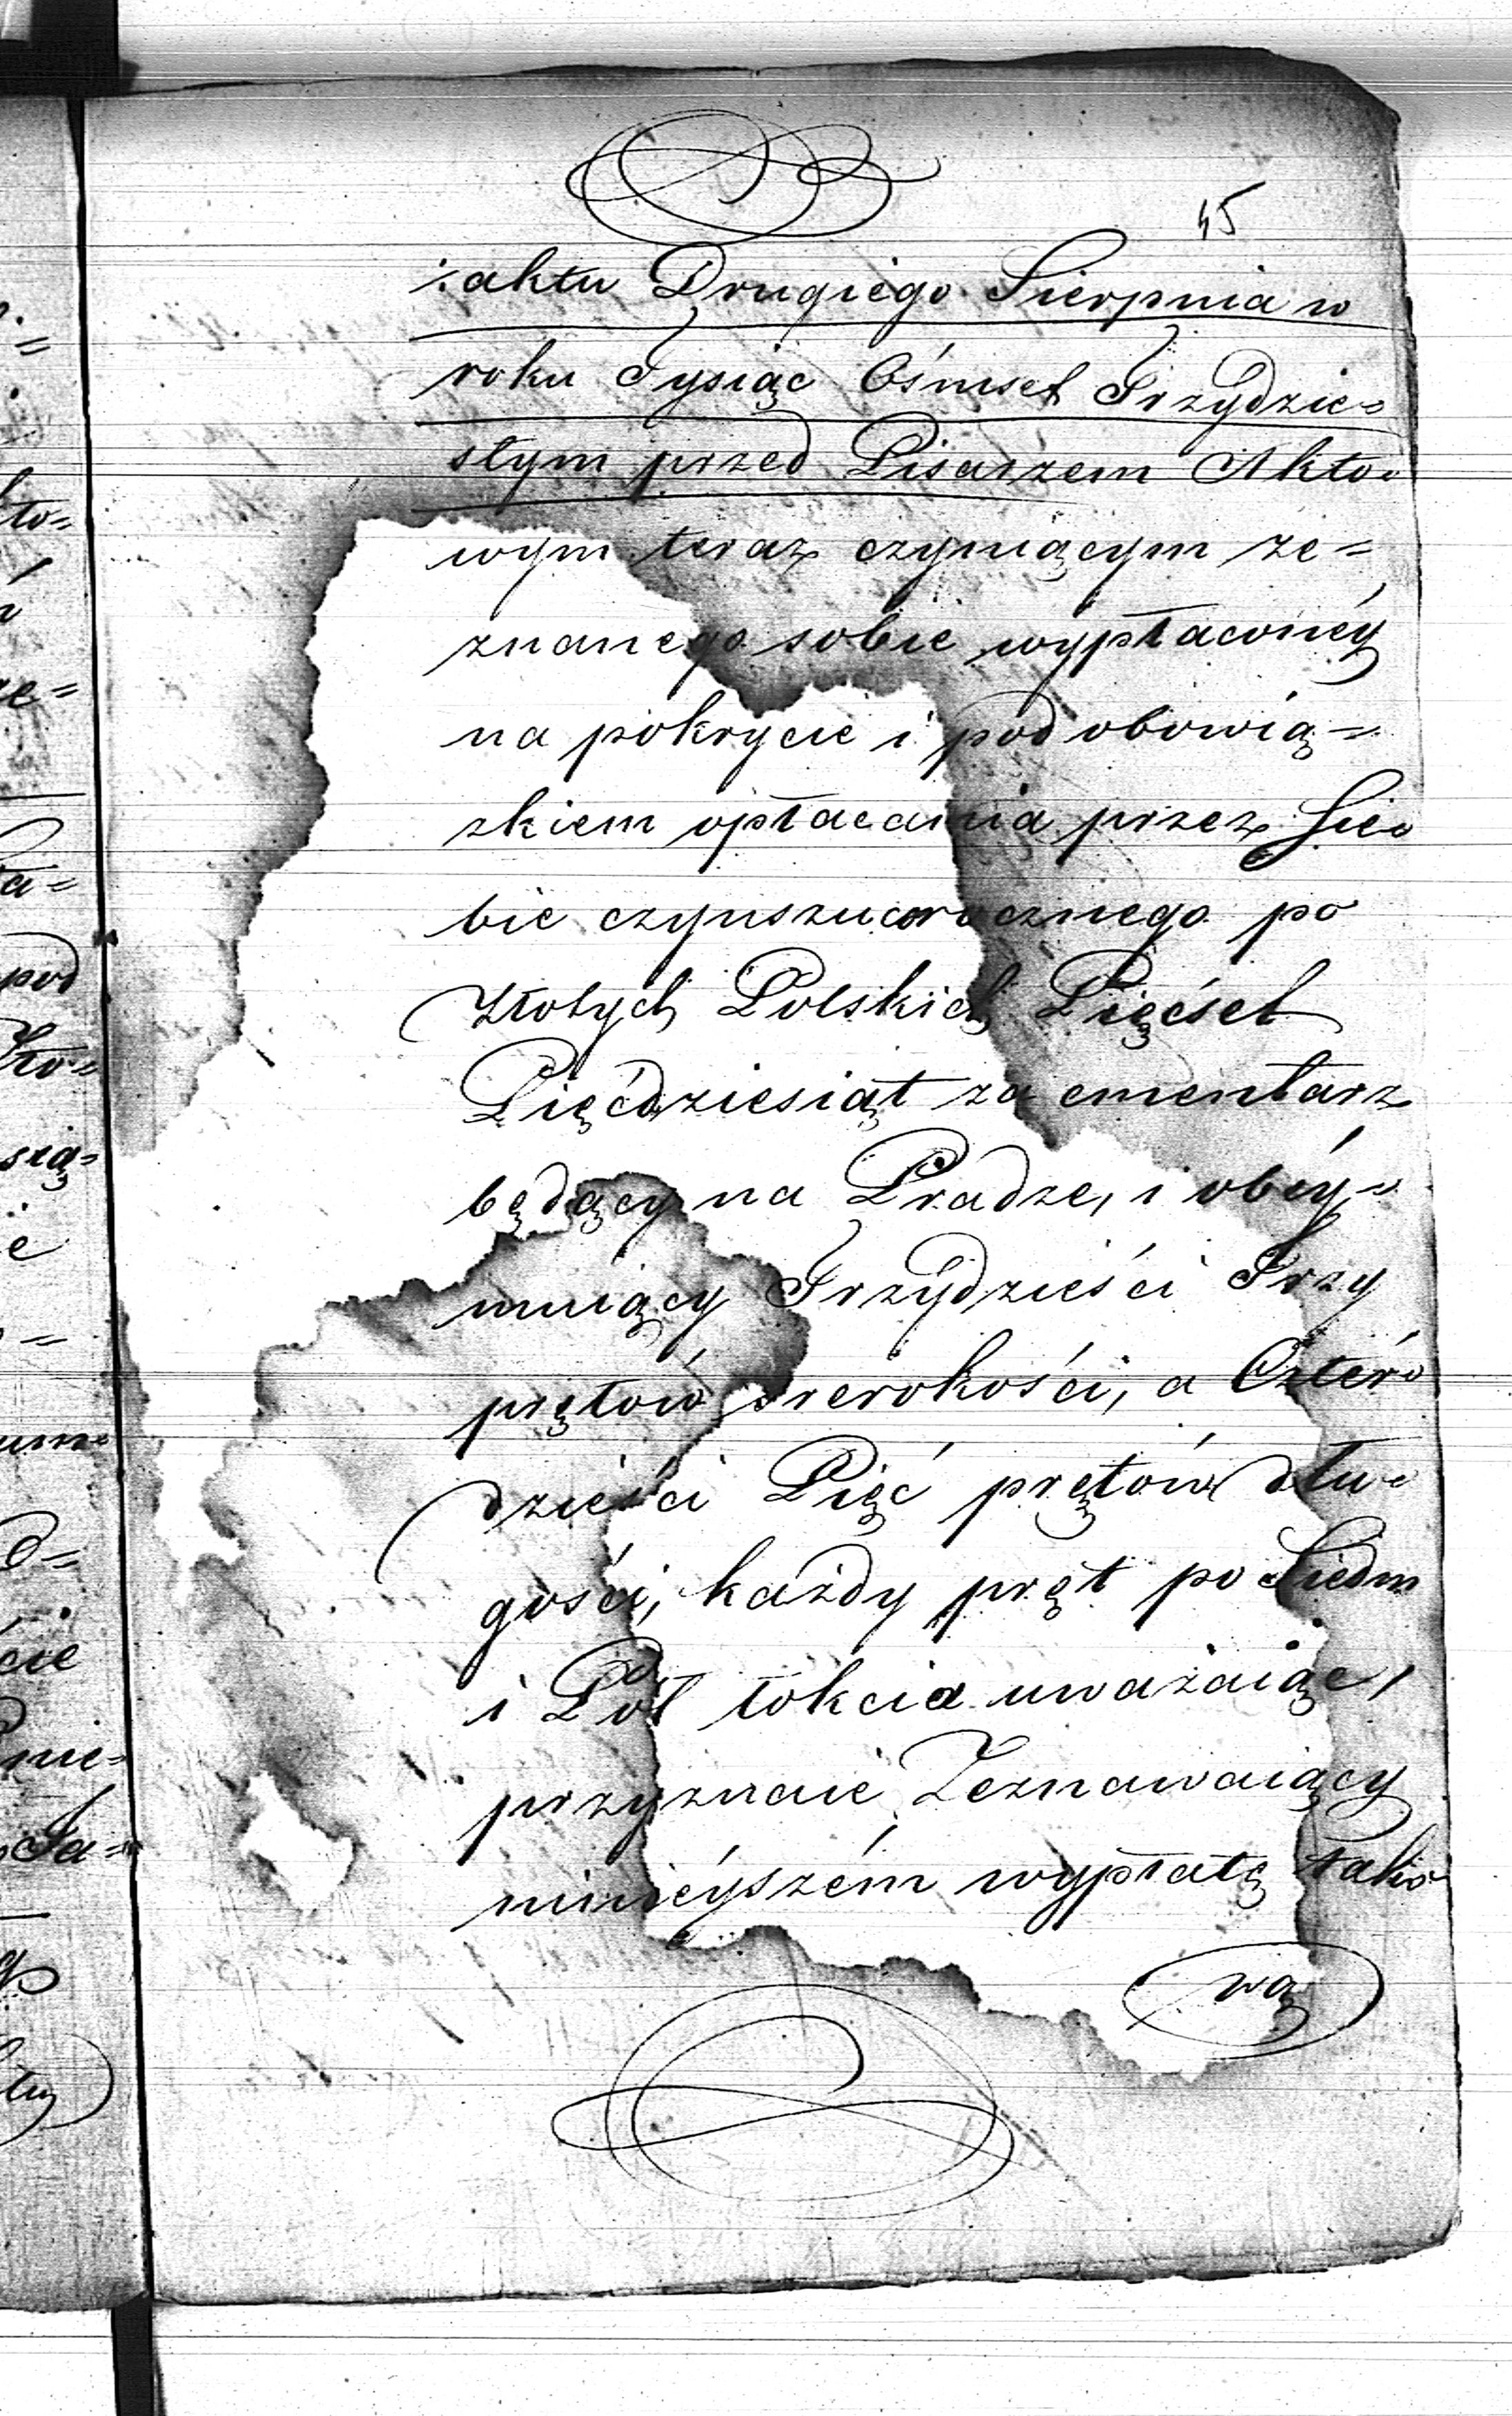 45
: aktu Drugiego Sierpnia w
roku Tysiąc Ośmset Trzydzie=
stym przed Pisarzem Akto=
wym teraz czyniącym ze=
znanego sobie wypłaconéy
na pokrycie i pod obowią=
zkiem opłacania przez Sie=
bie czynszu corocznego po
Złotych Polskich Pięćset
Pięćdziesiąt za cmentarz
będący na Pradze, i obéy=
muiący Trzydzieści Trzy
prętów szerokości, a Czter=
dzieści Pięć prętów dłu=
gości, każdy pręt po Siedm
i Pół łokcia uważaiąc,
przyznaie Zeznawaiący
ninieyszém wypłatę Tako=
wą
to=
pod
sią=
cie
nie=